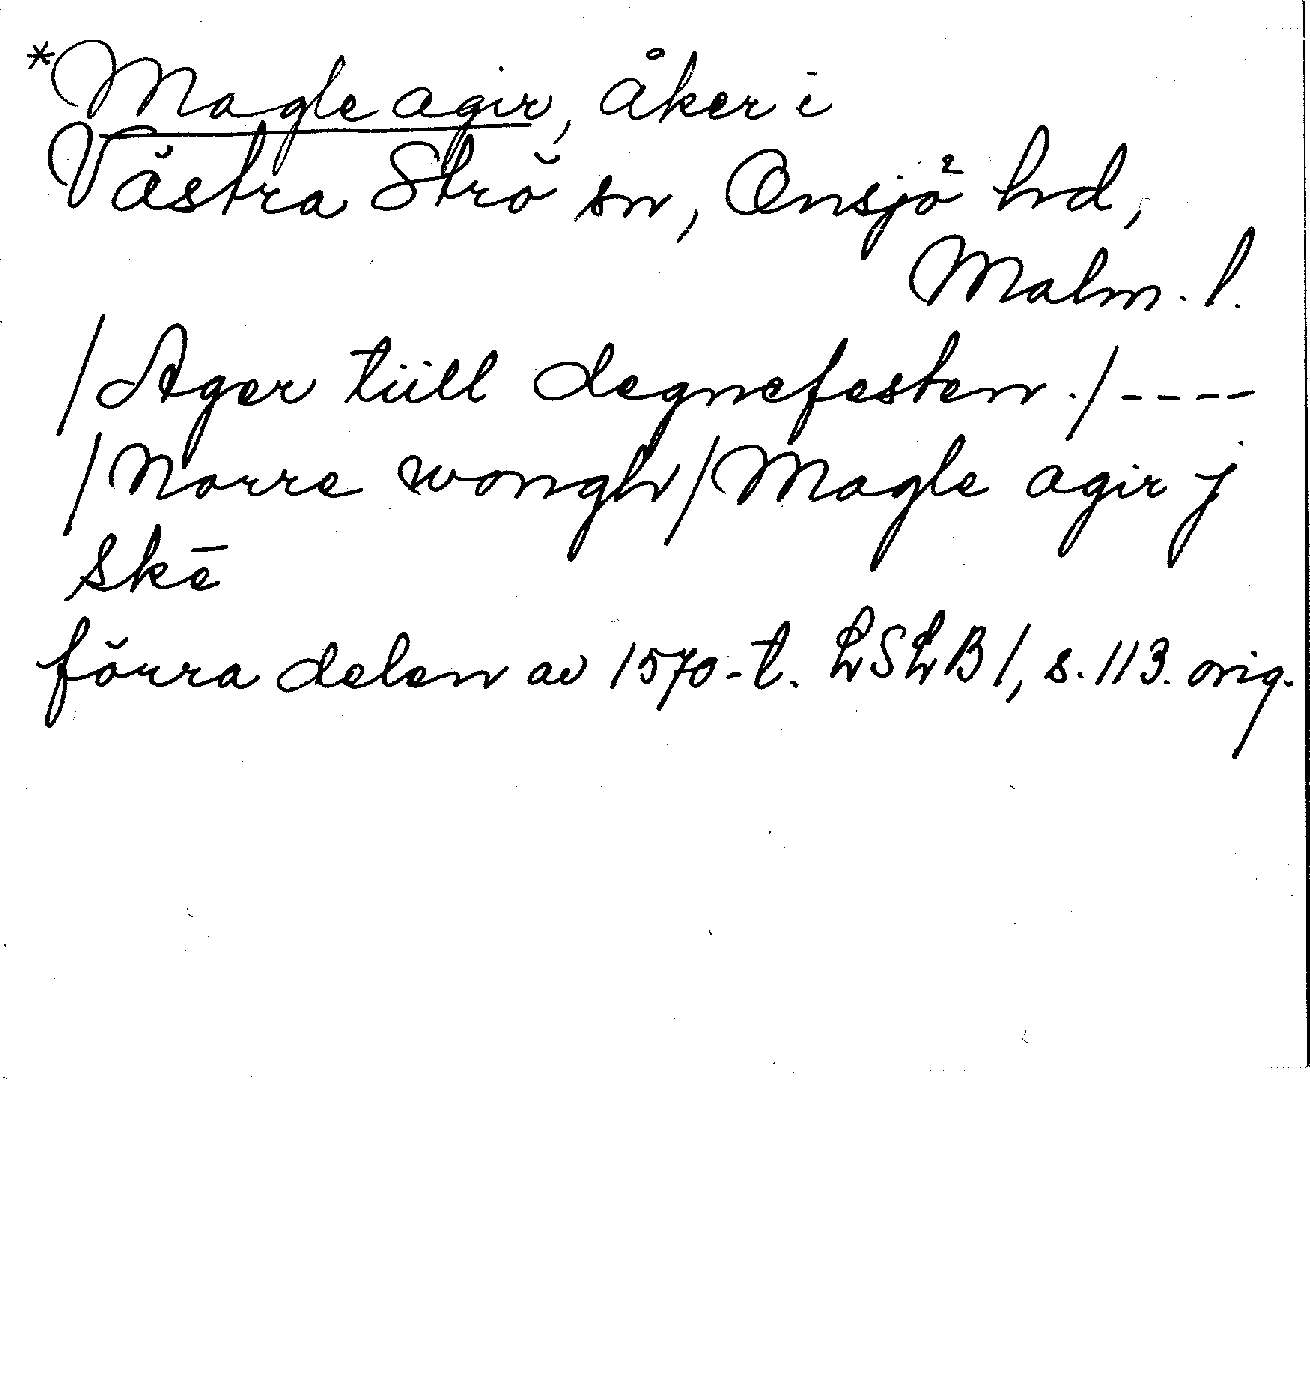 *Magle agir, åker i
Västra Strö sn, Onsjö hd,
Malm. l.
/Ager tiill degnefesten./----
/Norre wongh/Magle agir j
skē
förra delen av 1570-t. LSLB 1, s. 113. orig.